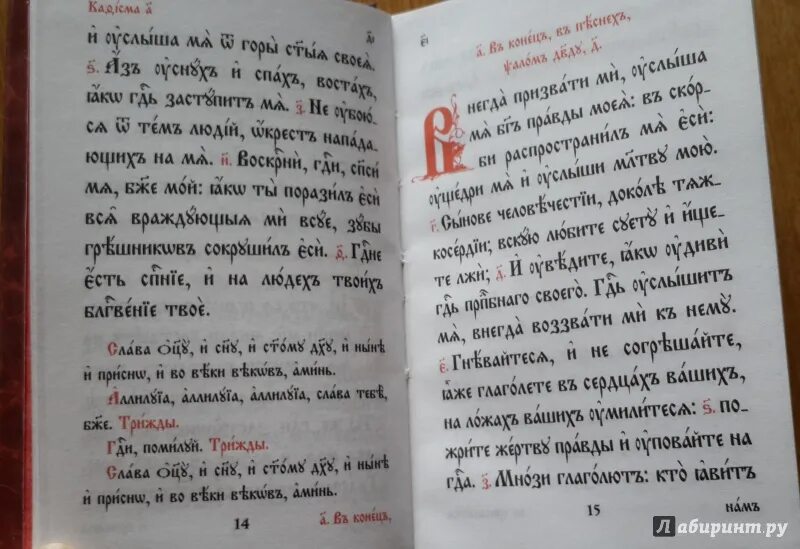 Каѳі́сма а҃
д҃і
и҆ ᲂу҆слы́ша мѧ̀ ѿ горы̀ ст҃ы́ѧ своеѧ̀.
ѕ҃. А҆́зъ ᲂу҆снꙋ́хъ и҆ спа́хъ, воста́хъ,
ꙗ҆́кѡ гдⷭ҇ь застꙋ́питъ мѧ̀. з҃. Не ᲂу҆бою́-
сѧ ѿ те́мъ люді́й, ѡ҆́крестъ напа́да-
ющихъ на мѧ̀. и҃. Воскрⷭ҇нѝ, гдⷭ҇и, спⷭ҇си́
мѧ, бж҃е мо́й: ꙗ҆́кѡ ты̀ порази́лъ є҆сѝ
всѧ̑ враждꙋ́ющыѧ мѝ всꙋ́е, зꙋ́бы
грѣ́шникѡвъ сокрꙋши́лъ є҆сѝ. ѳ҃. Гдⷭ҇не
є҆́сть сп҃се́нїе, и҆ на лю́дехъ твои́хъ
блгⷭ҇ве́нїе твоѐ.
Сла́ва ѻ҆ц҃ꙋ̀, и҆ сн҃ꙋ, и҆ ст҃о́мꙋ дх҃ꙋ, и҆ ны́нѣ
и҆ при́снѡ, и҆ во вѣ́ки вѣкѡ́въ, а҆ми́нь.
А҆ллилꙋ́їа, а҆ллилꙋ́їа, а҆ллилꙋ́їа, сла́ва тебѣ̀,
бж҃е. Три́жды.
Гдⷭ҇и, поми́лꙋй. Три́жды.
Сла́ва ѻ҆ц҃ꙋ̀, и҆ сн҃ꙋ, и҆ ст҃о́мꙋ дх҃ꙋ, и҆ ны́нѣ
и҆ при́снѡ, и҆ во вѣ́ки вѣкѡ́въ, а҆ми́нь.
14
д҃. Въ коне́цъ,
є҃і
д҃. Въ коне́цъ, въ пѣ́снехъ,
ѱало́мъ дв҃дꙋ, д҃.
Внегда̀ призва́ти мѝ, ᲂу҆слы́ша
мѧ̀ бг҃ъ пра́вды моеѧ̀: въ ско́р-
би распространи́лъ мѧ̀ є҆сѝ:
ᲂу҆ще́дри мѧ̀ и҆ ᲂу҆слы́ши мл҃твꙋ мою̀.
г҃. Сы́нове человѣ́честїи, доко́лѣ тѧж-
косе́рдїи; вскꙋ́ю лю́бите сꙋетꙋ̀ и҆ и҆́ще-
те лжѝ; д҃. И҆ ᲂу҆вѣ́дите, ꙗ҆́кѡ ᲂу҆дивѝ
гдⷭ҇ь прпⷣбнаго своего̀. Гдⷭ҇ь ᲂу҆слы́шитъ
мѧ̀, внегда̀ воззва́ти мѝ къ немꙋ̀.
є҃. Гнѣ́вайтесѧ, и҆ не согрѣша́йте,
ꙗ҆̀же глаго́лете въ сердца́хъ ва́шихъ,
на ло́жахъ ва́шихъ ᲂу҆мили́тесѧ: ѕ҃. по-
жри́те же́ртвꙋ пра́вды и҆ ᲂу҆пова́йте на
гдⷭ҇а. з҃. Мно́зи глаго́лютъ: кто̀ ꙗ҆ви́тъ
15
на́мъ
Лабиринт.ру